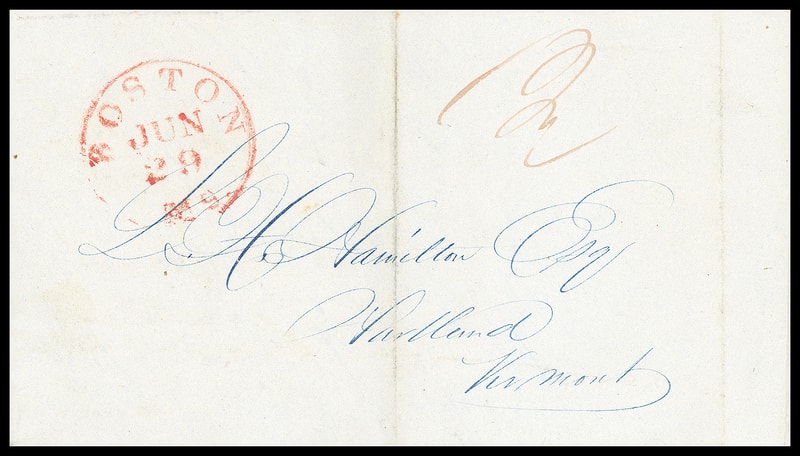 BOSTON
JUN
29
L. H. Hamilton Esq
Hartland
Vermont